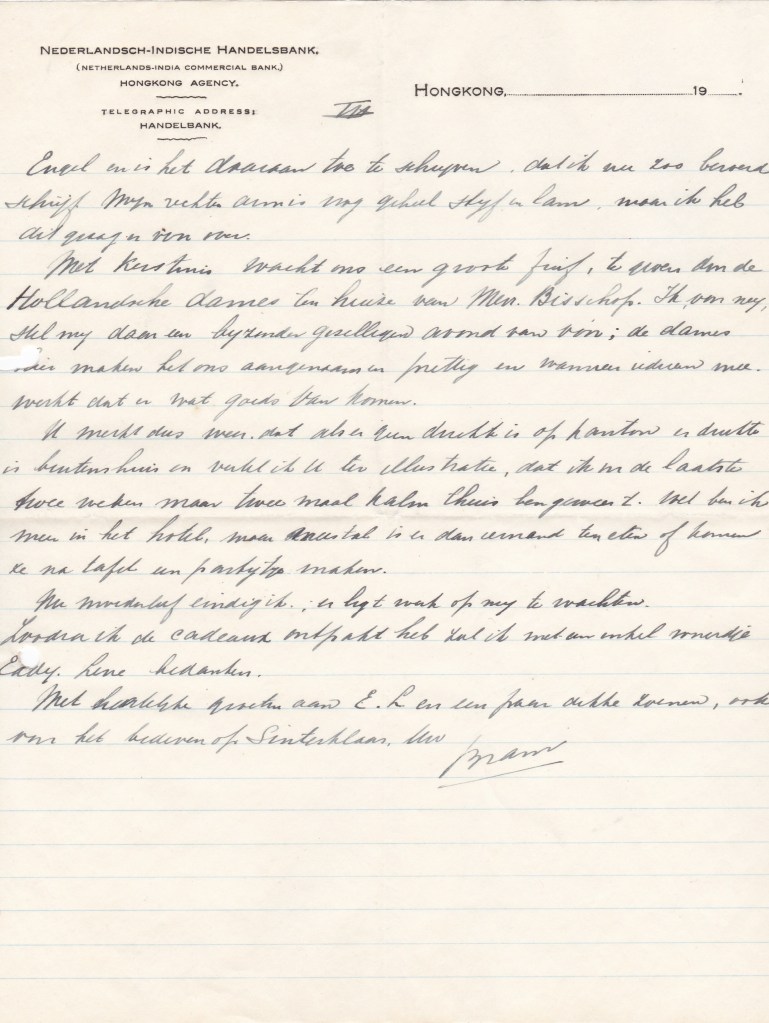 NEDERLANDSCH-INDISCHE HANDELSBANK,
(NETHERLANDS-INDIA COMMERCIAL BANK,)
HONGKONG AGENCY.
TELEGRAPHIC ADDRESS:
HANDELBANK.
HONGKONG, 19 .
III
Engel en is het daaraan toe te schryven, dat ik nu zoo beroerd
schryf. Myn rechter arm is nog geheel styf en lam, maar ik heb
dit graag er voor over.
Met Kerstmis wacht ons een groote fuif, te geven door de
Hollandsche dames ten huize van Mevr. Bisschop. Ik, voor my,
stel my daar een byzonder gezelligen avond van voor; de dames
hier maken het ons aangenaam en prettig en wanneer iedereen mee-
werkt dat er wat goeds van komen.
U merkt dus weer dat als er geen drukte is op kantoor er drukte
is buitenshuis en vertel ik U ter illustratie, dat ik in de laatste
twee weken maar twee maal kalm thuis ben geweest. Wel ben ik
meer in het hotel, maar meestal is er dan iemand ten eten of komen
ze na tafel een partytje maken.
Nu moederlief eindig ik; er ligt werk op my te wachten.
Zoodra ik de cadeaux ontpakt heb zal ik met een enkel woordje
Eddy, Lene bedanken.
Met hartelyke groeten aan E. L en een paar dikke zoenen, ook
voor het bedeven op Sinterklaas, Uw
Bram